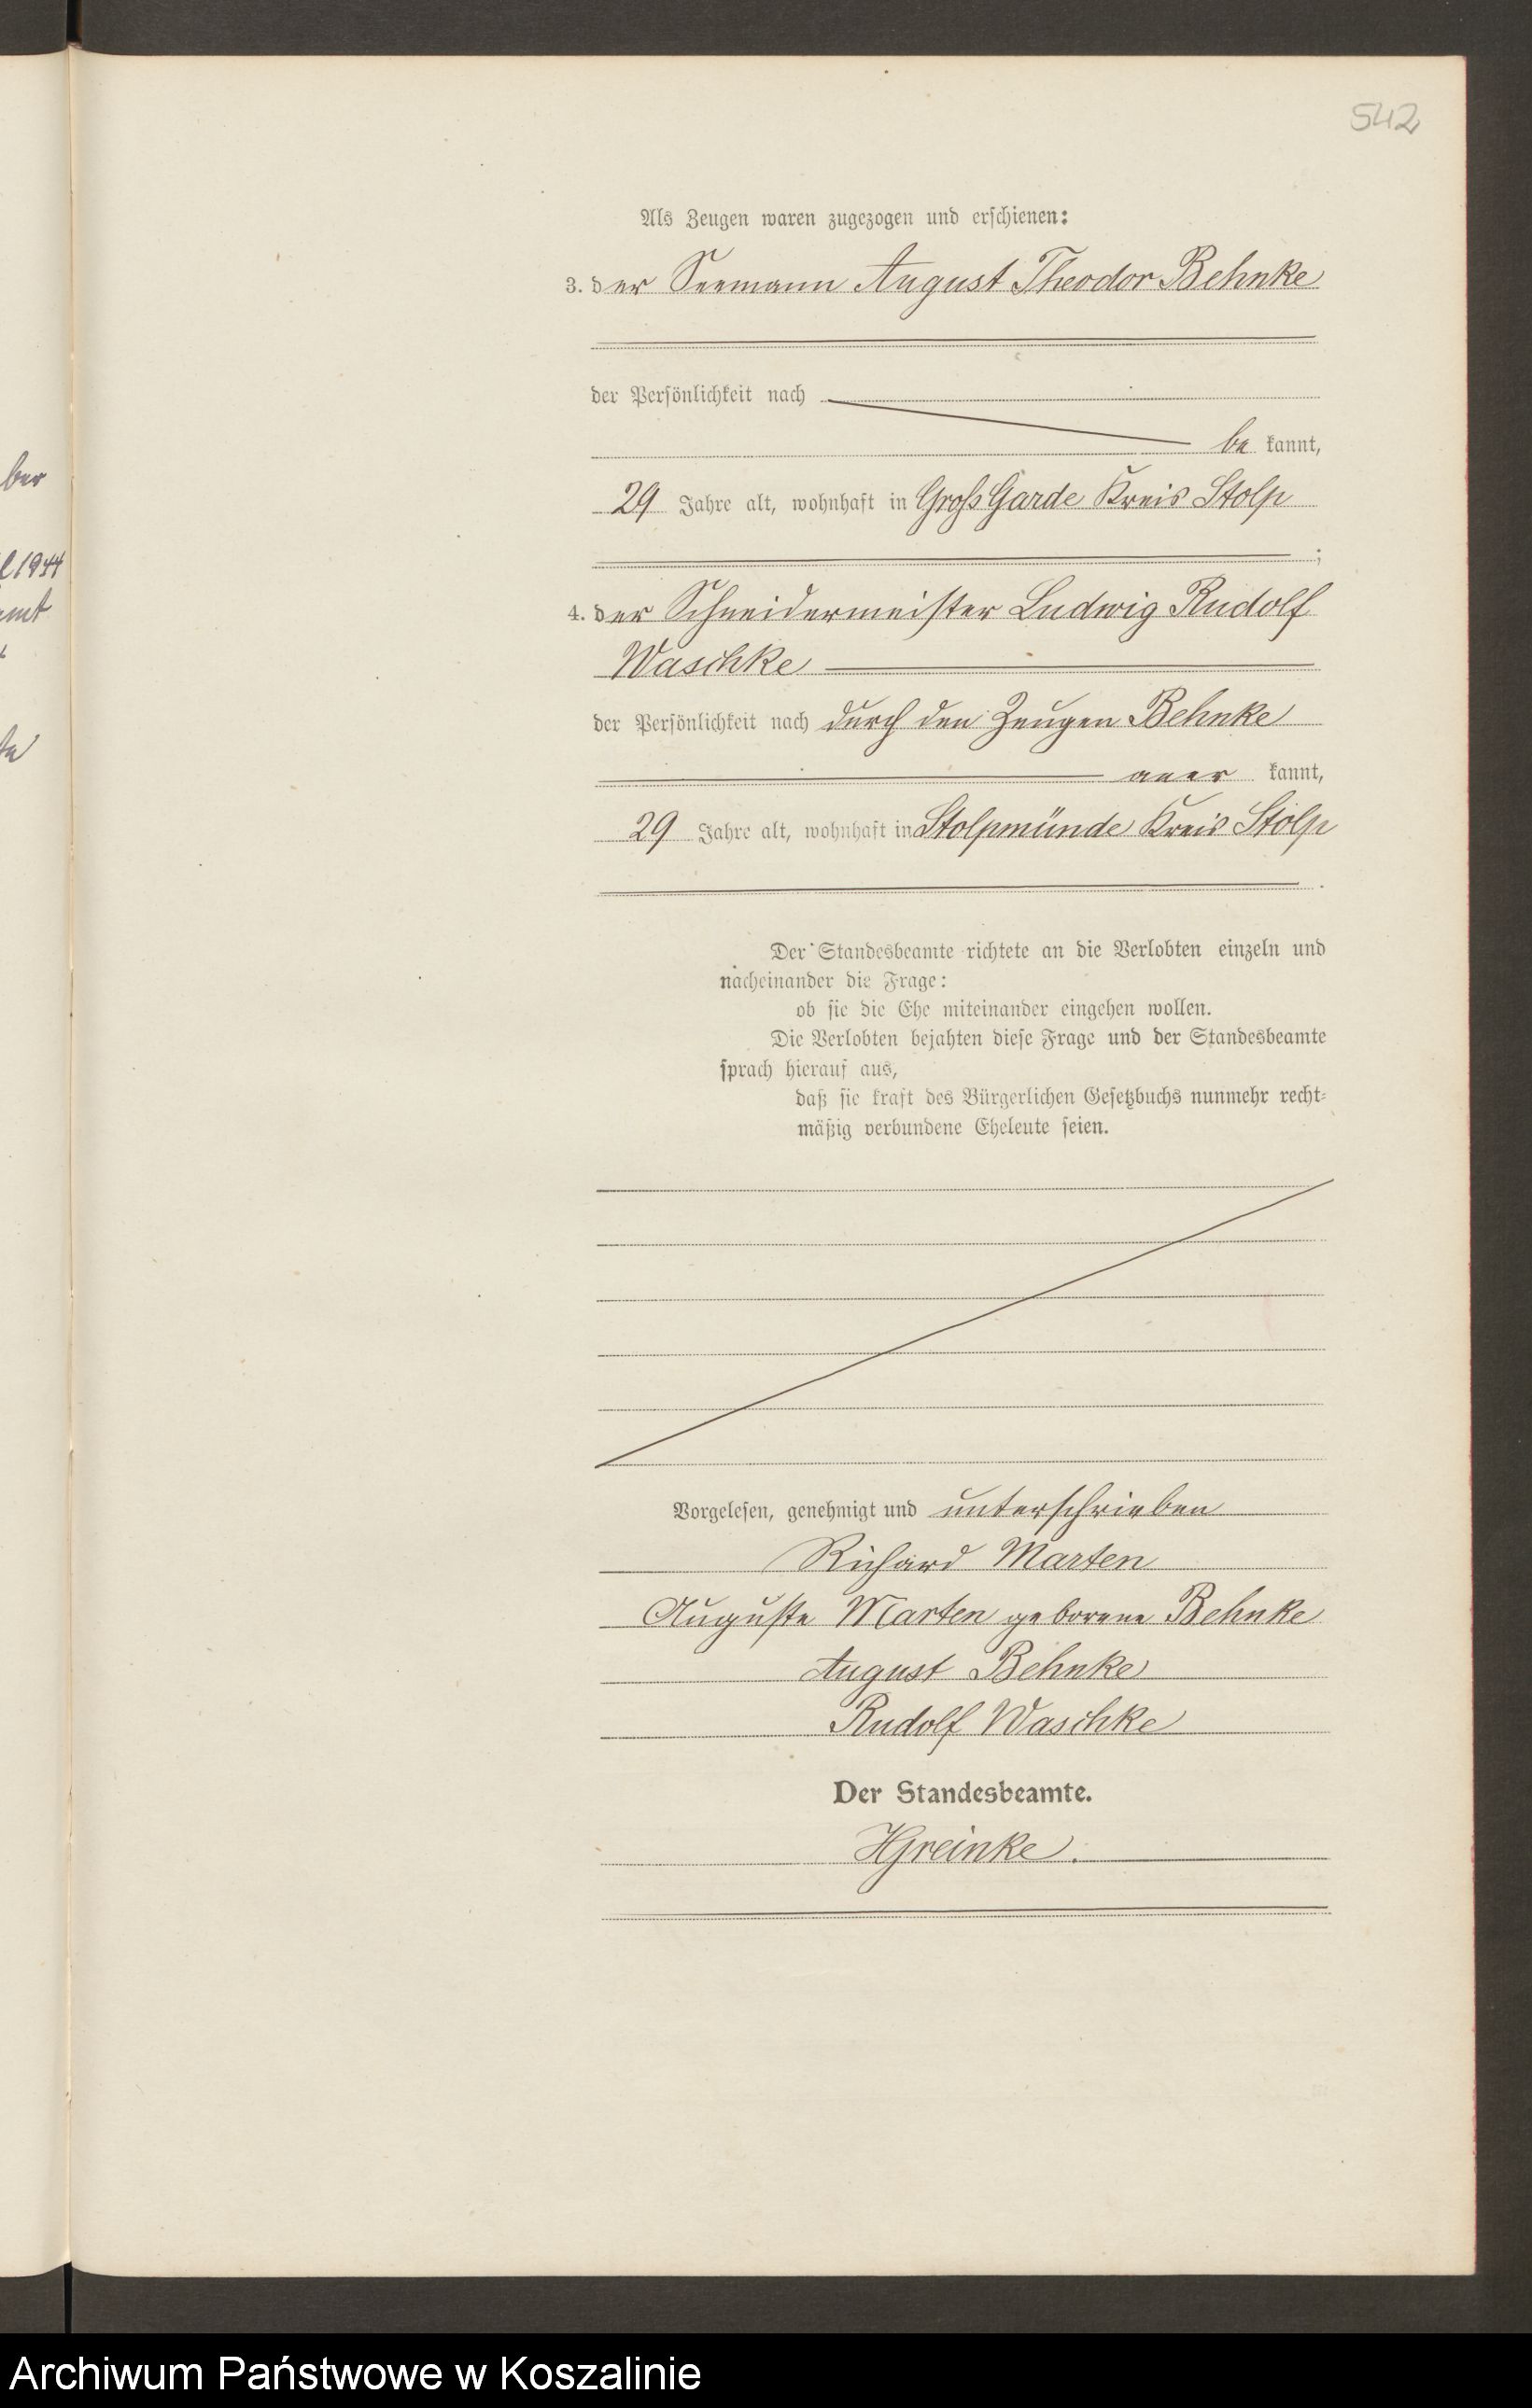 542
Als Zeugen waren zugezogen und erschienen:
3. der Seemann August Theodor Behnke
der Persönlichkeit nach
be kannt,
29 Jahre alt, wohnhaft in Groß Garde Kreis Stolp
;
4. der Schneidermeister Ludwig Rudolf
Waschke
der Persönlichkeit nach durch den Zeugen Behnke
aner kannt,
29 Jahre alt, wohnhaft in Stolpmünde Kreis Stolp
.
Der Standesbeamte richtete an die Verlobten einzeln und
nacheinander die Frage:
ob sie die Ehe miteinander eingehen wollen.
Die Verlobten bejahten diese Frage und der Standesbeamte
sprach hierauf aus,
daß sie kraft des Bürgerlichen Gesetzbuchs nunmehr recht-
mäßig verbundene Eheleute seien.
Vorgelesen, genehmigt und unterschrieben
Richard Marten
Auguste Marten geborene Behnke
August Behnke
Rudolf Waschke
Der Standesbeamte.
HGreinke.
Archiwum Państwowe w Koszalinie